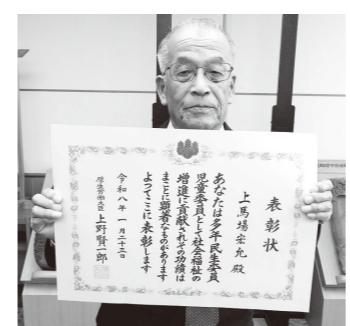 表彰状
上馬場宏允殿
あなたは多年民生委員
児童委員として社会福祉の
増進に貢献されその功績は
まことに顕著なものがあります
よってここに表彰します
令和八年一月二十三日
厚生労働大臣 上野賢一郎